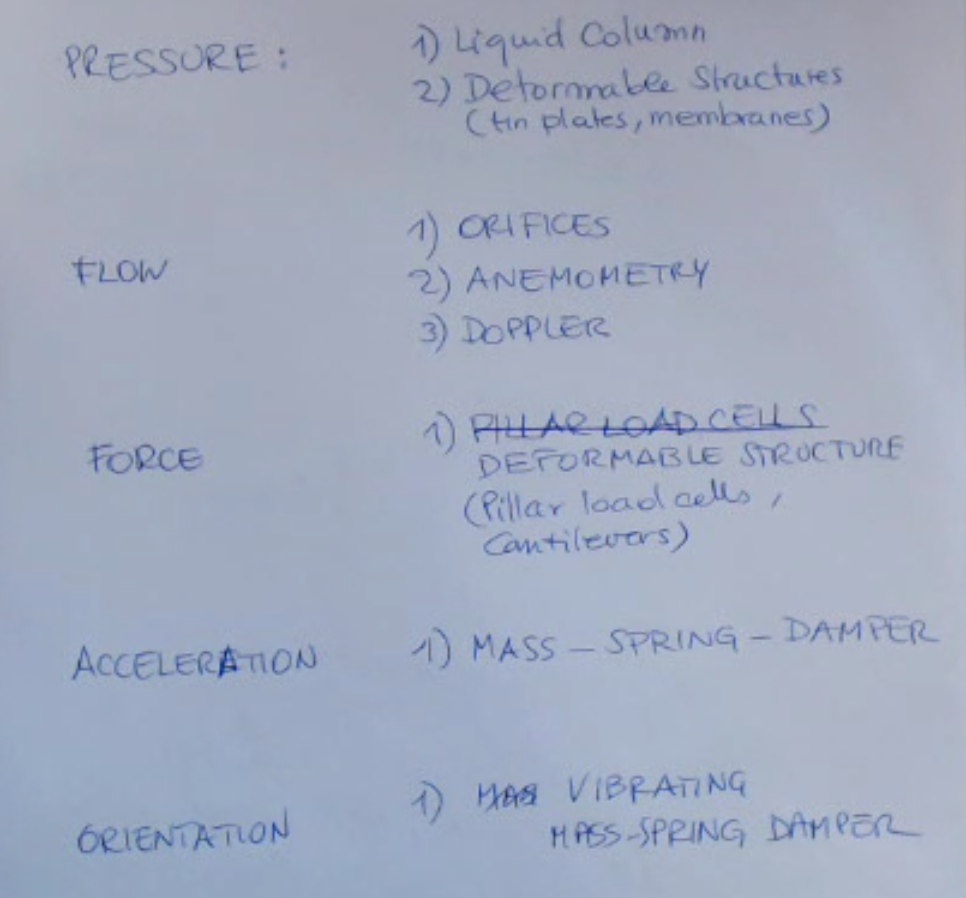 PRESSURE :
1) Liquid Column
2) Deformable Structures
(tin plates, membranes)
FLOW
1) ORIFICES
2) ANEMOMETRY
3) DOPPLER
FORCE
1) PILLAR LOAD CELLS
DEFORMABLE STRUCTURE
(Pillar load cells,
Cantilevers)
ACCELERATION
1) MASS - SPRING - DAMPER
ORIENTATION
1) VIBRATING
MASS-SPRING DAMPER